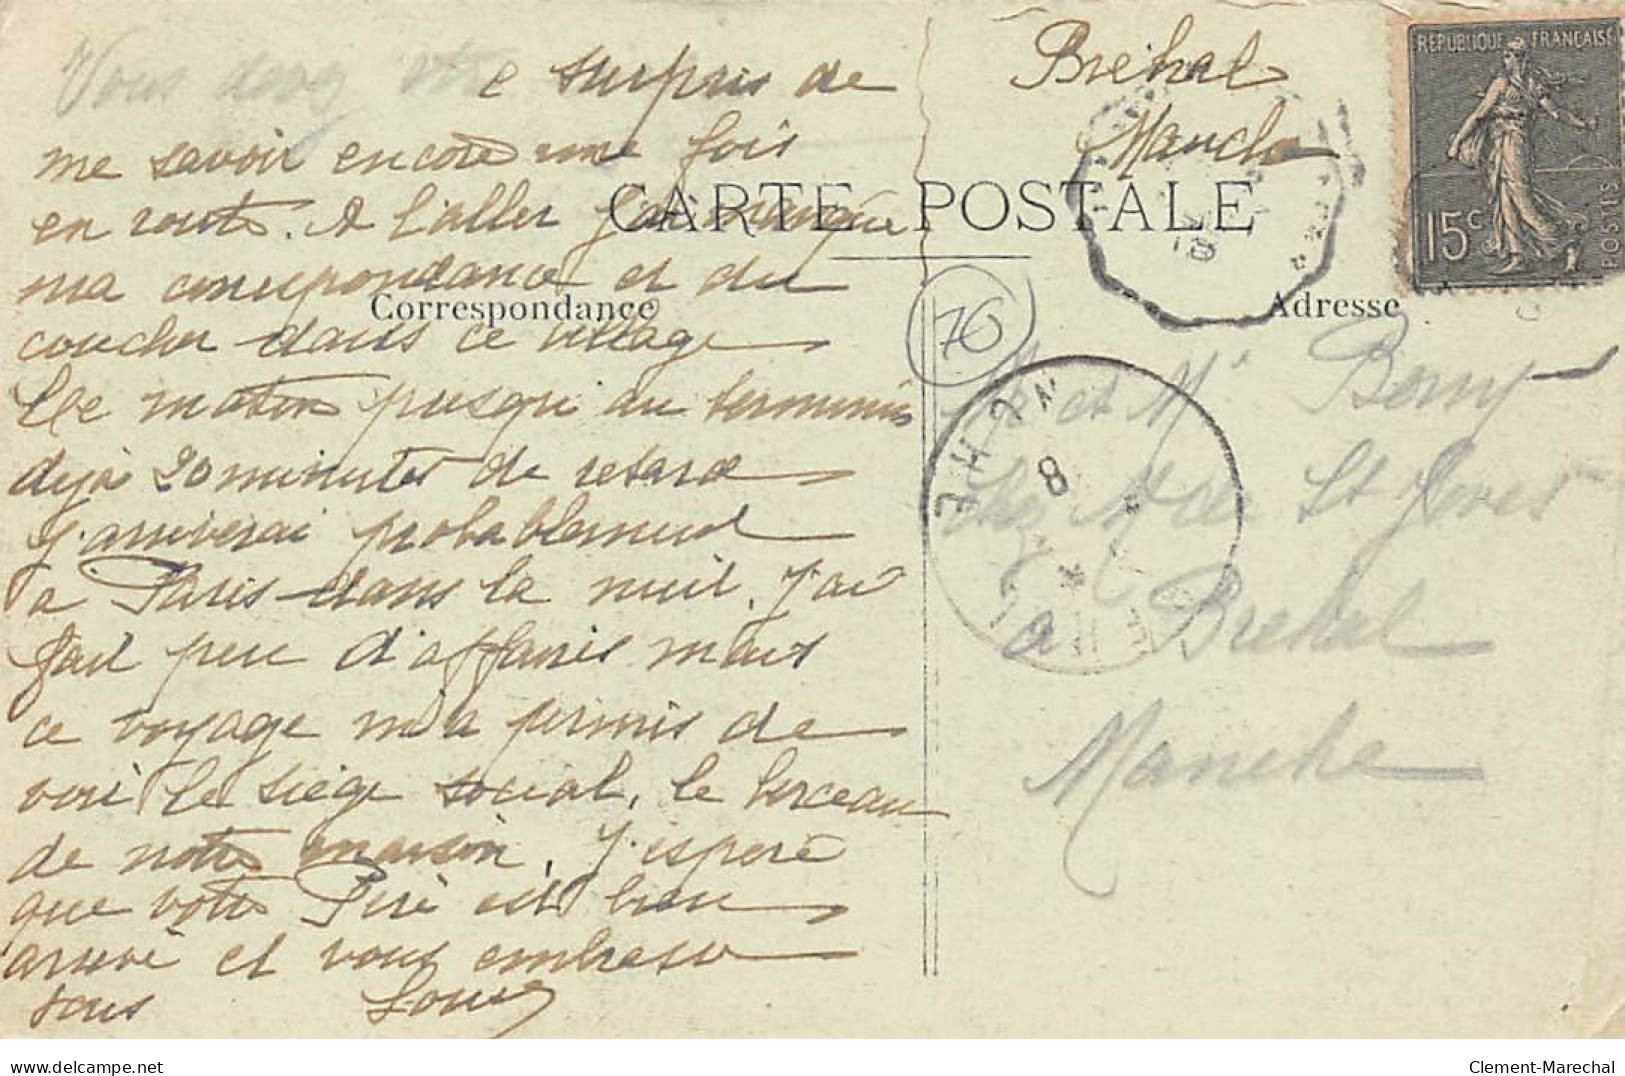 Vous devez être surpris de
me savoir encore une fois
en route. A l'aller j'ai manqué
ma correspondance et du
coucher dans ce village
Ce matin jusqu'au terminus
dejà 20 minutes de retard
J'arriverai probablement
a Paris dans la nuit. J'ai
fait peu d'affaires mais
ce voyage m'a permis de
voir le siège social, le berceau
de notre maison. J'espere
que votre Père est bien
arrivé et vous embrasse
tous Louis
CARTE POSTALE
Correspondance
Adresse
Bréhal
Manche
REPUBLIQUE FRANÇAISE
15c POSTES
76
18
8
MANCHE
M et Mme
chez Mr de St
a Brehal
Manche
Clement-Marechal
delcampe.net